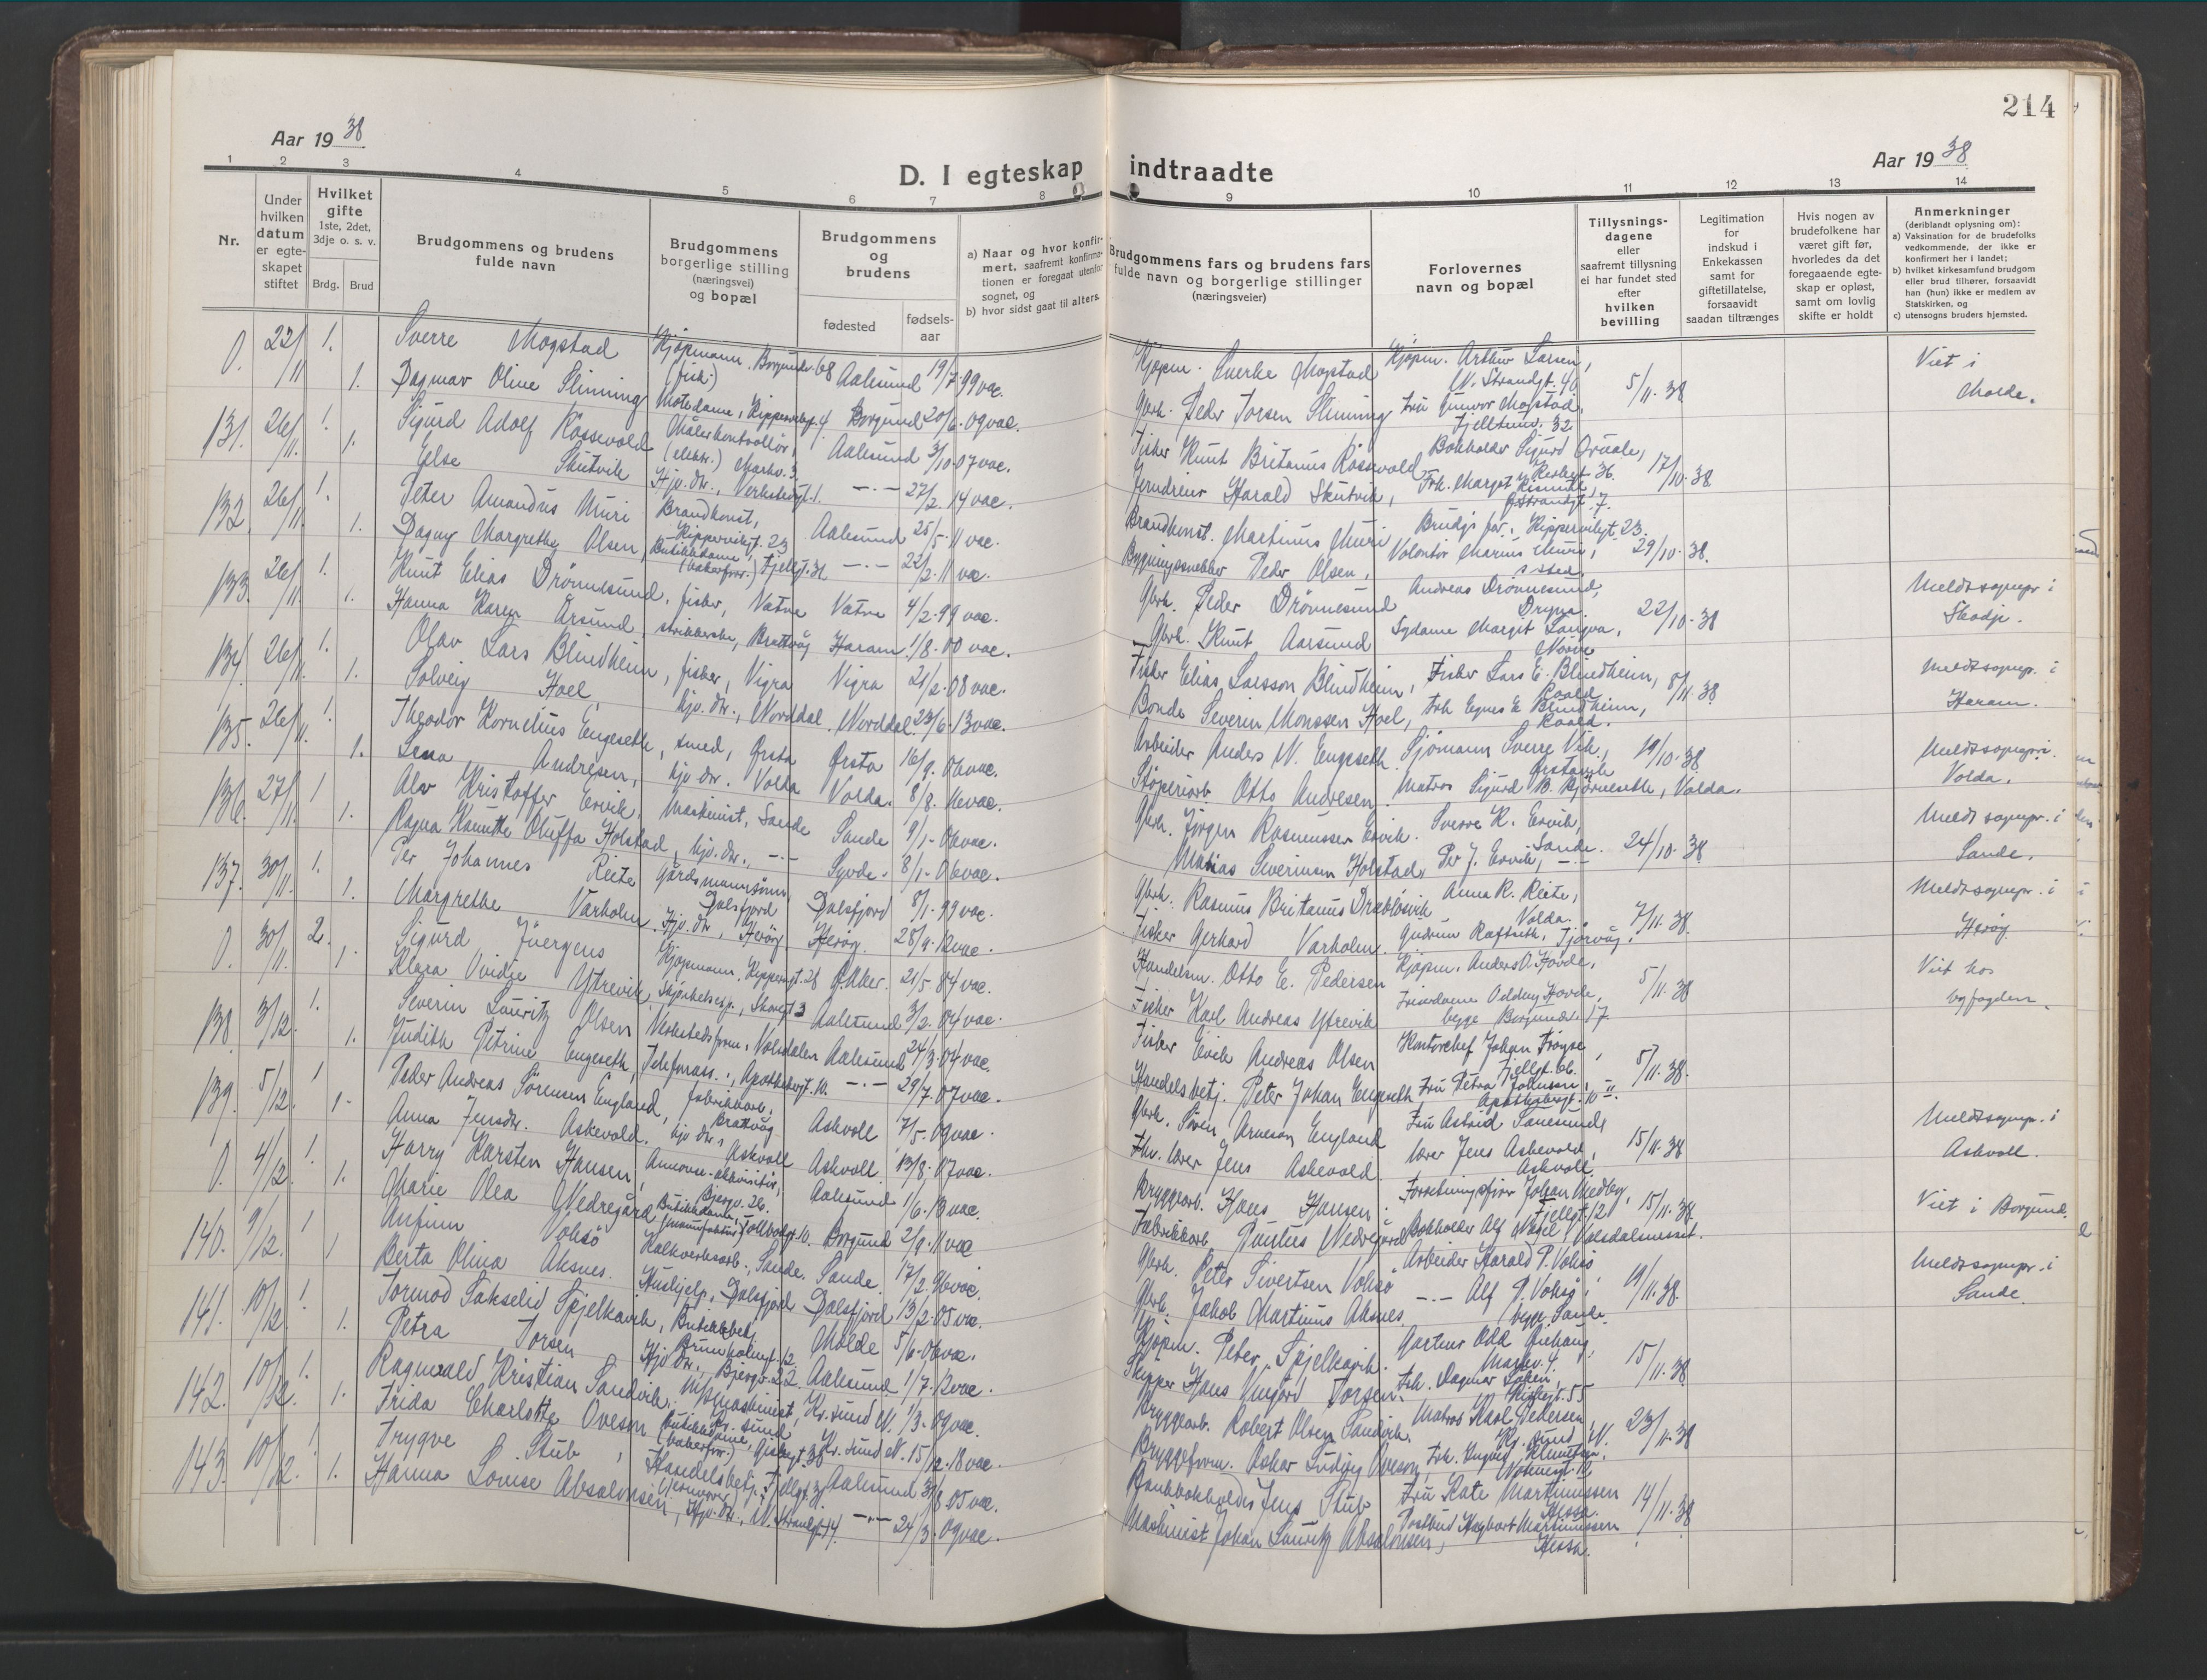 214
Aar 1938
D. I egteskap indtraadte
Aar 1938
1 2 3 4 5 6 7 8 9 10 11 12 13 14
Nr.
Under hvilken datum er egte-skapet stiftet
Hvilket gifte 1ste, 2det, 3dje o. s. v.
Brdg. Brud
Brudgommens og brudens fulde navn
Brudgommens borgerlige stilling (næringsvei) og bopæl
Brudgommens og brudens
fødested
fødsels-aar
a) Naar og hvor konfir-mert, saafremt konfirma-tionen er foregaat utenfor sognet, og
b) hvor sidst gaat til alters.
Brudgommens fars og brudens fars fulde navn og borgerlige stillinger (næringsveier)
Forlovernes navn og bopæl
Tillysnings-dagene eller saafremt tillysning ei har fundet sted efter hvilken bevilling
Legitimation for indskud i Enkekassen samt for giftetillatelse, forsaavidt saadan tiltrænges
Hvis nogen av brudefolkene har været gift før, hvorledes da det foregaaende egte-skap er opløst, samt om lovlig skifte er holdt
Anmerkninger (deriblandt oplysning om):
a) Vaksination for de brudefolks vedkommende, der ikke er konfirmert her i landet;
b) hvilket kirkesamfund brudgom eller brud tilhører, forsaavidt han (hun) ikke er medlem av Statskirken, og
c) utensogns bruders hjemsted.
0. 22/11 1. Sverre Mogstad Kjøpmann (fisk) Borgundv. 68 Aalesund 19/7-99 vac. Kjøpm. Sverke Mogstad Kjøpm. Arthur Larsen, N. Strandgt. 40 5/11. 38 Viet i
1. Dagmar Oline Slinning Motedame, Kipperviksgt. 4 Borgund 20/6-09 vac. Gbrk. Peder Torsen Slinning Fru Gunvor Mogstad, Fjelltunv. 32 Molde.
131. 26/11. 1. Sigurd Adolf Røssevold Målerkontrollør, (elektr.) Markv. 3 Aalesund 3/10-07 vac. Fisker Knut Britanus Røssevold Bokholder Sigurd Orvale, 36. 17/10-38
1. Else Skutvik Hjv. dtr., Verkstedgt. 1. -"- 27/2. 14 vac. Harald Skutvik, Frk. Margot
132. 26/11. 1. Peter Amandus Muri Brandkonst, Kippervikgt. 23 Aalesund 25/5-11 vac. Brandkonst. Martinus Muri Brudgs far, Kippervikgt. 23.
1. Dagny Margrethe Olsen, Butikkdame, (bakerforr.) Fjellgt. 31 -"- 22/2-11 vac. Bygningssnekker Peder Olsen, Volontør Marius Muri, s. sted. 29/10-38.
133. 26/11. 1. Knut Elias Drønnesund, fisker, Vatne Vatne 4/2-99 vac. Gbrk. Peder Drønnesund Andreas Drønnesund, Dryna. 22/10-38 Meldt sognepr. i
1. Hanna Karen Årsund, strikkerske, Brattvåg Haram. 1/8-00 vac. Gbrk. Knut Aarsund Sydame Margit Langva, Skodje.
134. 26/11. 1. Olav Lars Blindheim, fisker, Vigra Vigra 21/2-08 vac. Fisker Elias Larsson Blindheim, Fisker Lars E. Blindheim, Roald 8/11-38 Meldt sognep. i
1. Solveig Hoel, hjv. dtr., Norddal. Norddal. 23/6-13 vac. Bonde Severin Monssen Hoel, Frk Egnes E Blindheim, Roald. Haram.
135. 26/11. 1. Theodor Kornelius Engeseth, smed, Ørsta Ørsta 16/9. 06 vac. Arbeider Anders N. Engeseth Sjømann Sverre Vik, Ørstavik 19/10-38 Meldt sognepr. i
1. Lena Andresen, hjv dtr. Volda Volda. 8/8. 16 vac. Støperiarb. Otto Andresen Matros Sigurd B. Bjørneseth, Volda. Volda.
136. 27/11. 1 Alv Kristoffer Ervik, Maskinist, Sande Sande 9/1-06 vac. Gbrk. Jørgen Rasmussen Ervik. Sverre K. Ervik, Sande. 24/10-38 Meldt sognepr. i
1. Ragna Kanutte Oluffa Holstad, hjv. dtr., -"- Syvde. 8/1-06 vac. Matias Severinsen Holstad Per J. Ervik, -"- Sande.
137. 30/11. 1. Per Johannes Reite Gårdsmannsønn, Dalsfjord Dalsfjord 8/1-99 vac. Gbrk. Rasmus Britanus Drabløsvik Anna R. Reite, Volda. 7/11. 38. Meldt sognepr. i
1. Margrethe Varholm Hjv. dtr, Herøy. Herøy 28/4. 12 vac. Fisker Gerhard Varholm. Gudrun Raftseth, Tjørvåg. Herøy
0. 30/11. 2. Sigurd Juergens Kjøpmann, Kippervgt. 28 Ø. Aker. 21/5-84 vac. Handelsm. Otto E. Pedersen Kjøpm. Anders O. Hovde, 5/11. 38 Viet hos
1. Klara Ovidie Ytrevik, Skjorteksp., Skaregt 3 Aalesund 3/2. 04 vac. Fisker Karl Andreas Ytrevik Frisørdame Oddny Hovde, begge Borgundv. 17. byfogden.
138 3/12. 1. Severin Lauritz Olsen Verkstedsform., Volsdalen Aalesund 24/3-04 vac. Fisker Eivik Andreas Olsen Kontorchef Johan Frøyse, Fjellgt. 66. 5/11-38.
1. Judith Petrine Engeseth, Telefonass., Apothekergt. 10. -"- 29/7-07 vac. Handelsbetj. Peter Johan Engeseth Fru Petra Johnsen, Apothekergt. 10
139. 5/12. 1 Peder Andreas Sørensen Engeland, fabrikkarb., Brattvåg Askvoll 7/5-09 vac. Gbrk. Søren Arneson Engeland Fru Astrid Sunesunde 15/11-38 Meldt sognepr. i
1. Anna Jensdtr. Askevold. hjv dtr, Askvoll Askvoll. 13/8-07 vac. Fhv. lærer Jens Askevold lærer Jens Askevold, Askvoll Askvoll.
0. 4/12. 1. Harry Karsten Hansen, Annonse-akkvisitør, Bjørgv. 26. Aalesund 1/6. 13 vac. Bryggearb. Hans Hansen Forretningsfører Johan Nedby, Fjellgt. 12 15/11. 38. Viet i Borgund.
1. Marie Olea Nedregård Butikkdame, (manufaktur) Tollbodgt 10. Borgund 2/9. 11 vac Fabrikkarb Paulus Nedregård Bokholder Alf Nagel, Volsdalsneset.
140. 9/12. 1 Anfinn Voksø Kalkverksarb., Sande. Sande. 17/2. 96 vac. Gbrk. Peter Sivertsen Voksø Arbeider Harald P. Voksø 19/11. 38. Meldt sognepr. i
1 Berta Olina Aksnes. Hushjelp, Dalsfjord Dalsfjord 13/2-05 vac. Gbrk. Jakob Martinus Aksnes, -"- Alf P. Voksø, begge Sande. Sande.
141. 10/12. 1. Tormod Sakselid Spjelkavik, Butikkbetj, Brunholmgt. 12. Molde 5/6-06 vac. Kjøpm. Peter Spjelkavik. Gartner Odd Giskaug, Markv. 4. 15/11-38
1. Petra Torsen Hjv dtr., Bjørgv. 22. Aalesund 1/7. 12 vac. Skipper Hans Vingård Torsen. Frk. Dagmar Løken, Kirkegt. 55
142. 10/12. 1. Ragnvald Kristian Sandvik, Skipsmaskinist, Kr. sund Kr. sund N. 1/3-09 vac. Bryggearb. Robert Olsen Sandvik. Matros Karl Pedersen Kr. sund N. 23/11-38
1. Frida Charlotte Ovesen, Butikkdame, (bakerforr.) Giskegt. 38 Kr. sund N. 15/12. 18 vac. Bryggeform. Oskar Ludvig Ovesen, Frk. Ingrid
143. 10/12. 1. Trygve Stub, Handelsbetj. Fjellgt. 31. Aalesund 31/8 05 vac. Bankbokholder Jens Stub Fru Kate Martinussen Hessa. 14/11-38
1. Hanna Louise Absalonsen, Hjv. dtr., N. Strandgt. 14. -"- 24/3. 09 vac. Maskinist Johan Lauritz Absalonsen, Postbud Hagbart Martinussen Hessa.